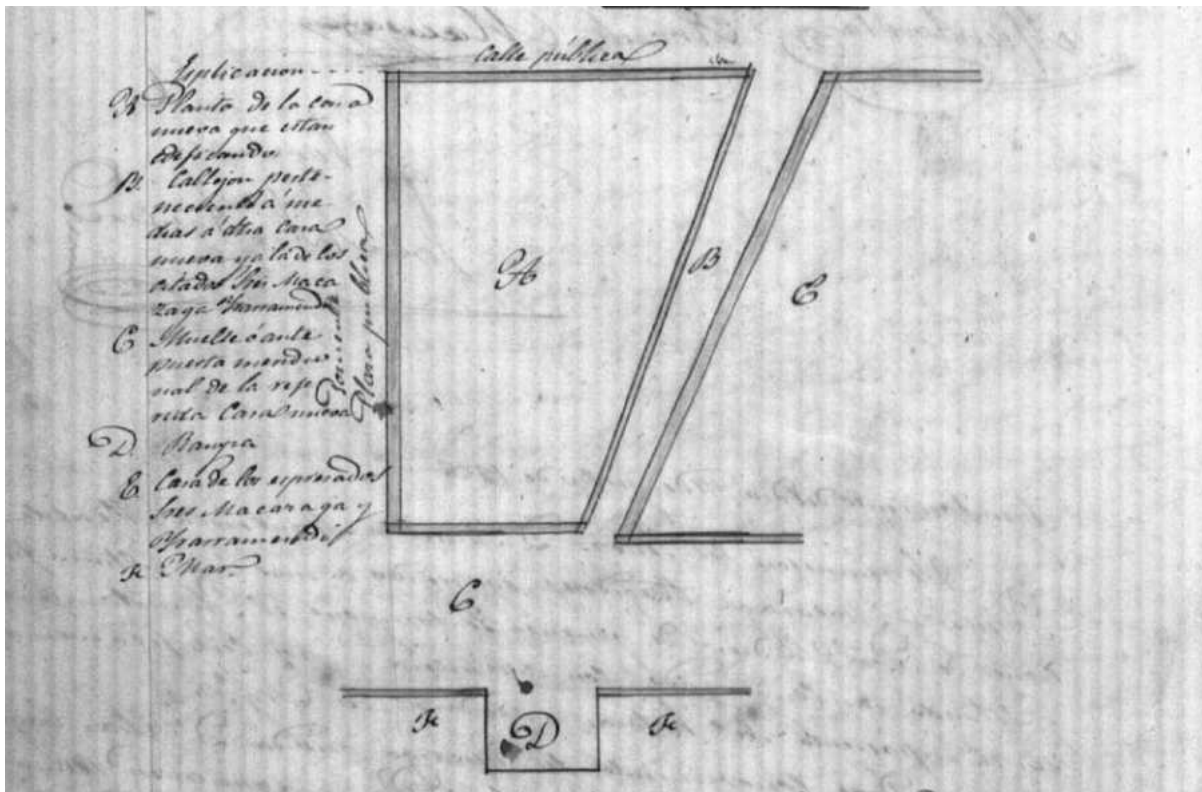 Calle pública
Esplicacion
A Planta de la casa
nueva que estan
edificando
B. Callejon perte-
neciente á me
dias á dha casa
nueva y a la de los
citados Sres Maca
zaga Yrarramendi
C Muelle ó ante
puerta meridio
nal de la refe
rida Casa nueva
D. Rampa
E Casa de los espresados
Sres Macazaga y
Yrarramendi
F Mar.
Plaza publica
A
B
E
C
F
D
F